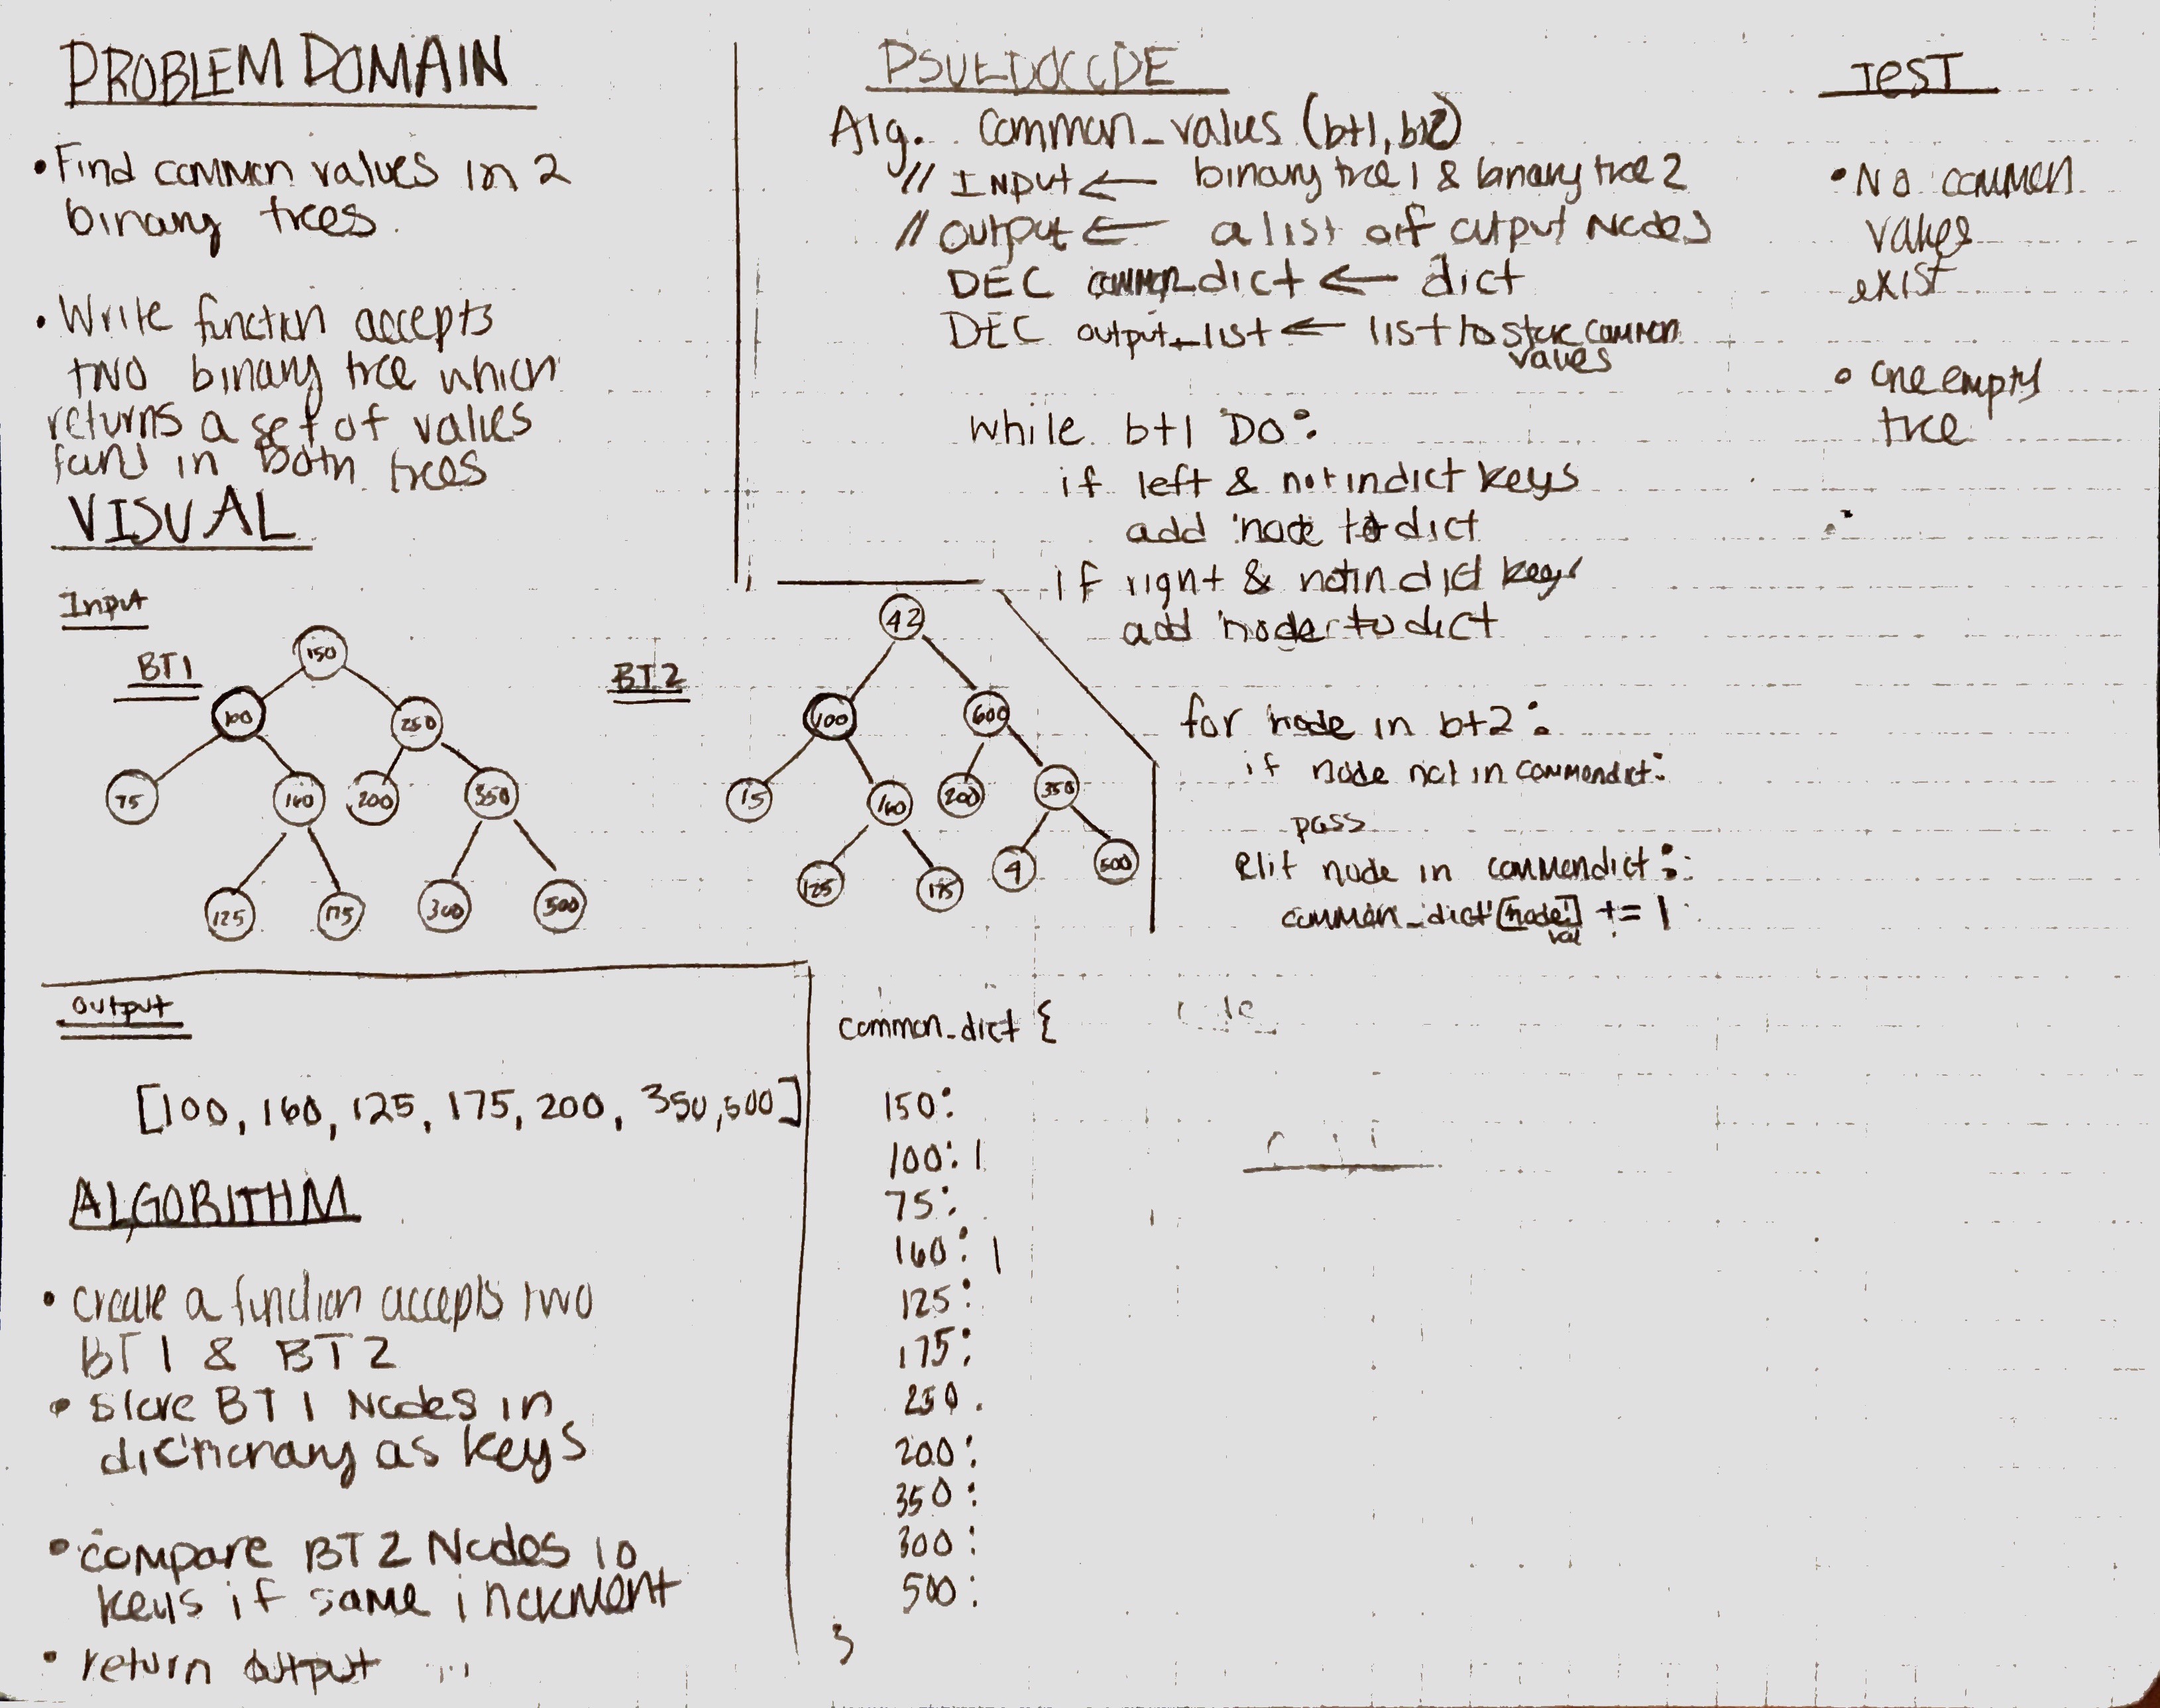 PROBLEM DOMAIN
• Find common values in 2
binary trees.
• Write function accepts
two binary tree which
returns a set of values
in both trees
VISUAL
Input
BT1
150
100
250
75
160
200
350
125
175
300
500
BT2
42
100
600
15
160
200
350
125
175
9
500
output
[100, 160, 125, 175, 200, 350, 500]
ALGORITHM
• create a function accepts two
BT1 & BT2
• store BT1 Nodes in
dictionary as keys
• compare BT2 Nodes to
keys if same increment
• return output
PSUEDOCODE
Alg. common_values (bt1, bt2)
// INPUT ← binary tree 1 & binary tree 2
// output ← a list of output Nodes
DEC common_dict ← dict
DEC output_list ← list to store common
values
while bt1 DO:
if left & not in dict keys
add node to dict
if right & not in dict keys
add node to dict
for node in bt2:
if node not in commondict:
pass
elif node in commondict:
common_dict [node] += 1
val
common_dict {
150:
100: 1
75:
160: 1
125:
175:
250.
200:
350:
300:
500:
}
TEST
• No common
values
exist
• one empty
tree